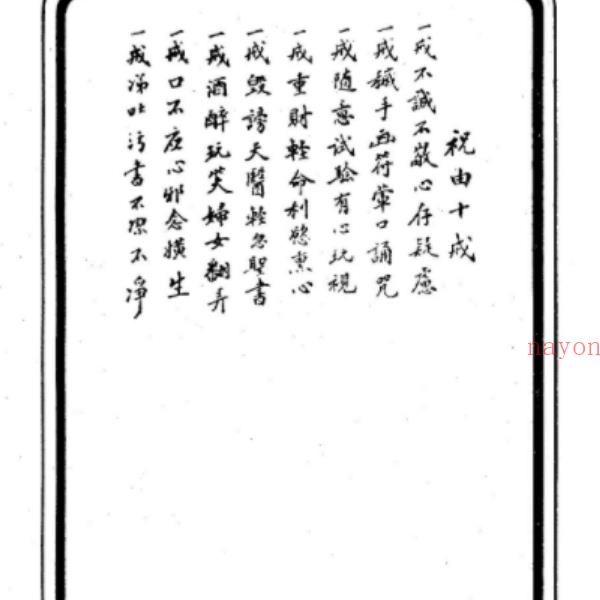 祝由十戒
一戒不誠不敬心存疑慮
一戒穢手画符葷口誦咒
一戒随意试驗有心玩視
一戒重財輕命利慾熏心
一戒毀謗天醫輕忽聖書
一戒酒醉玩笑婦女翻弄
一戒口不应心邪念横生
一戒涕吐污書不潔不淨
nayon